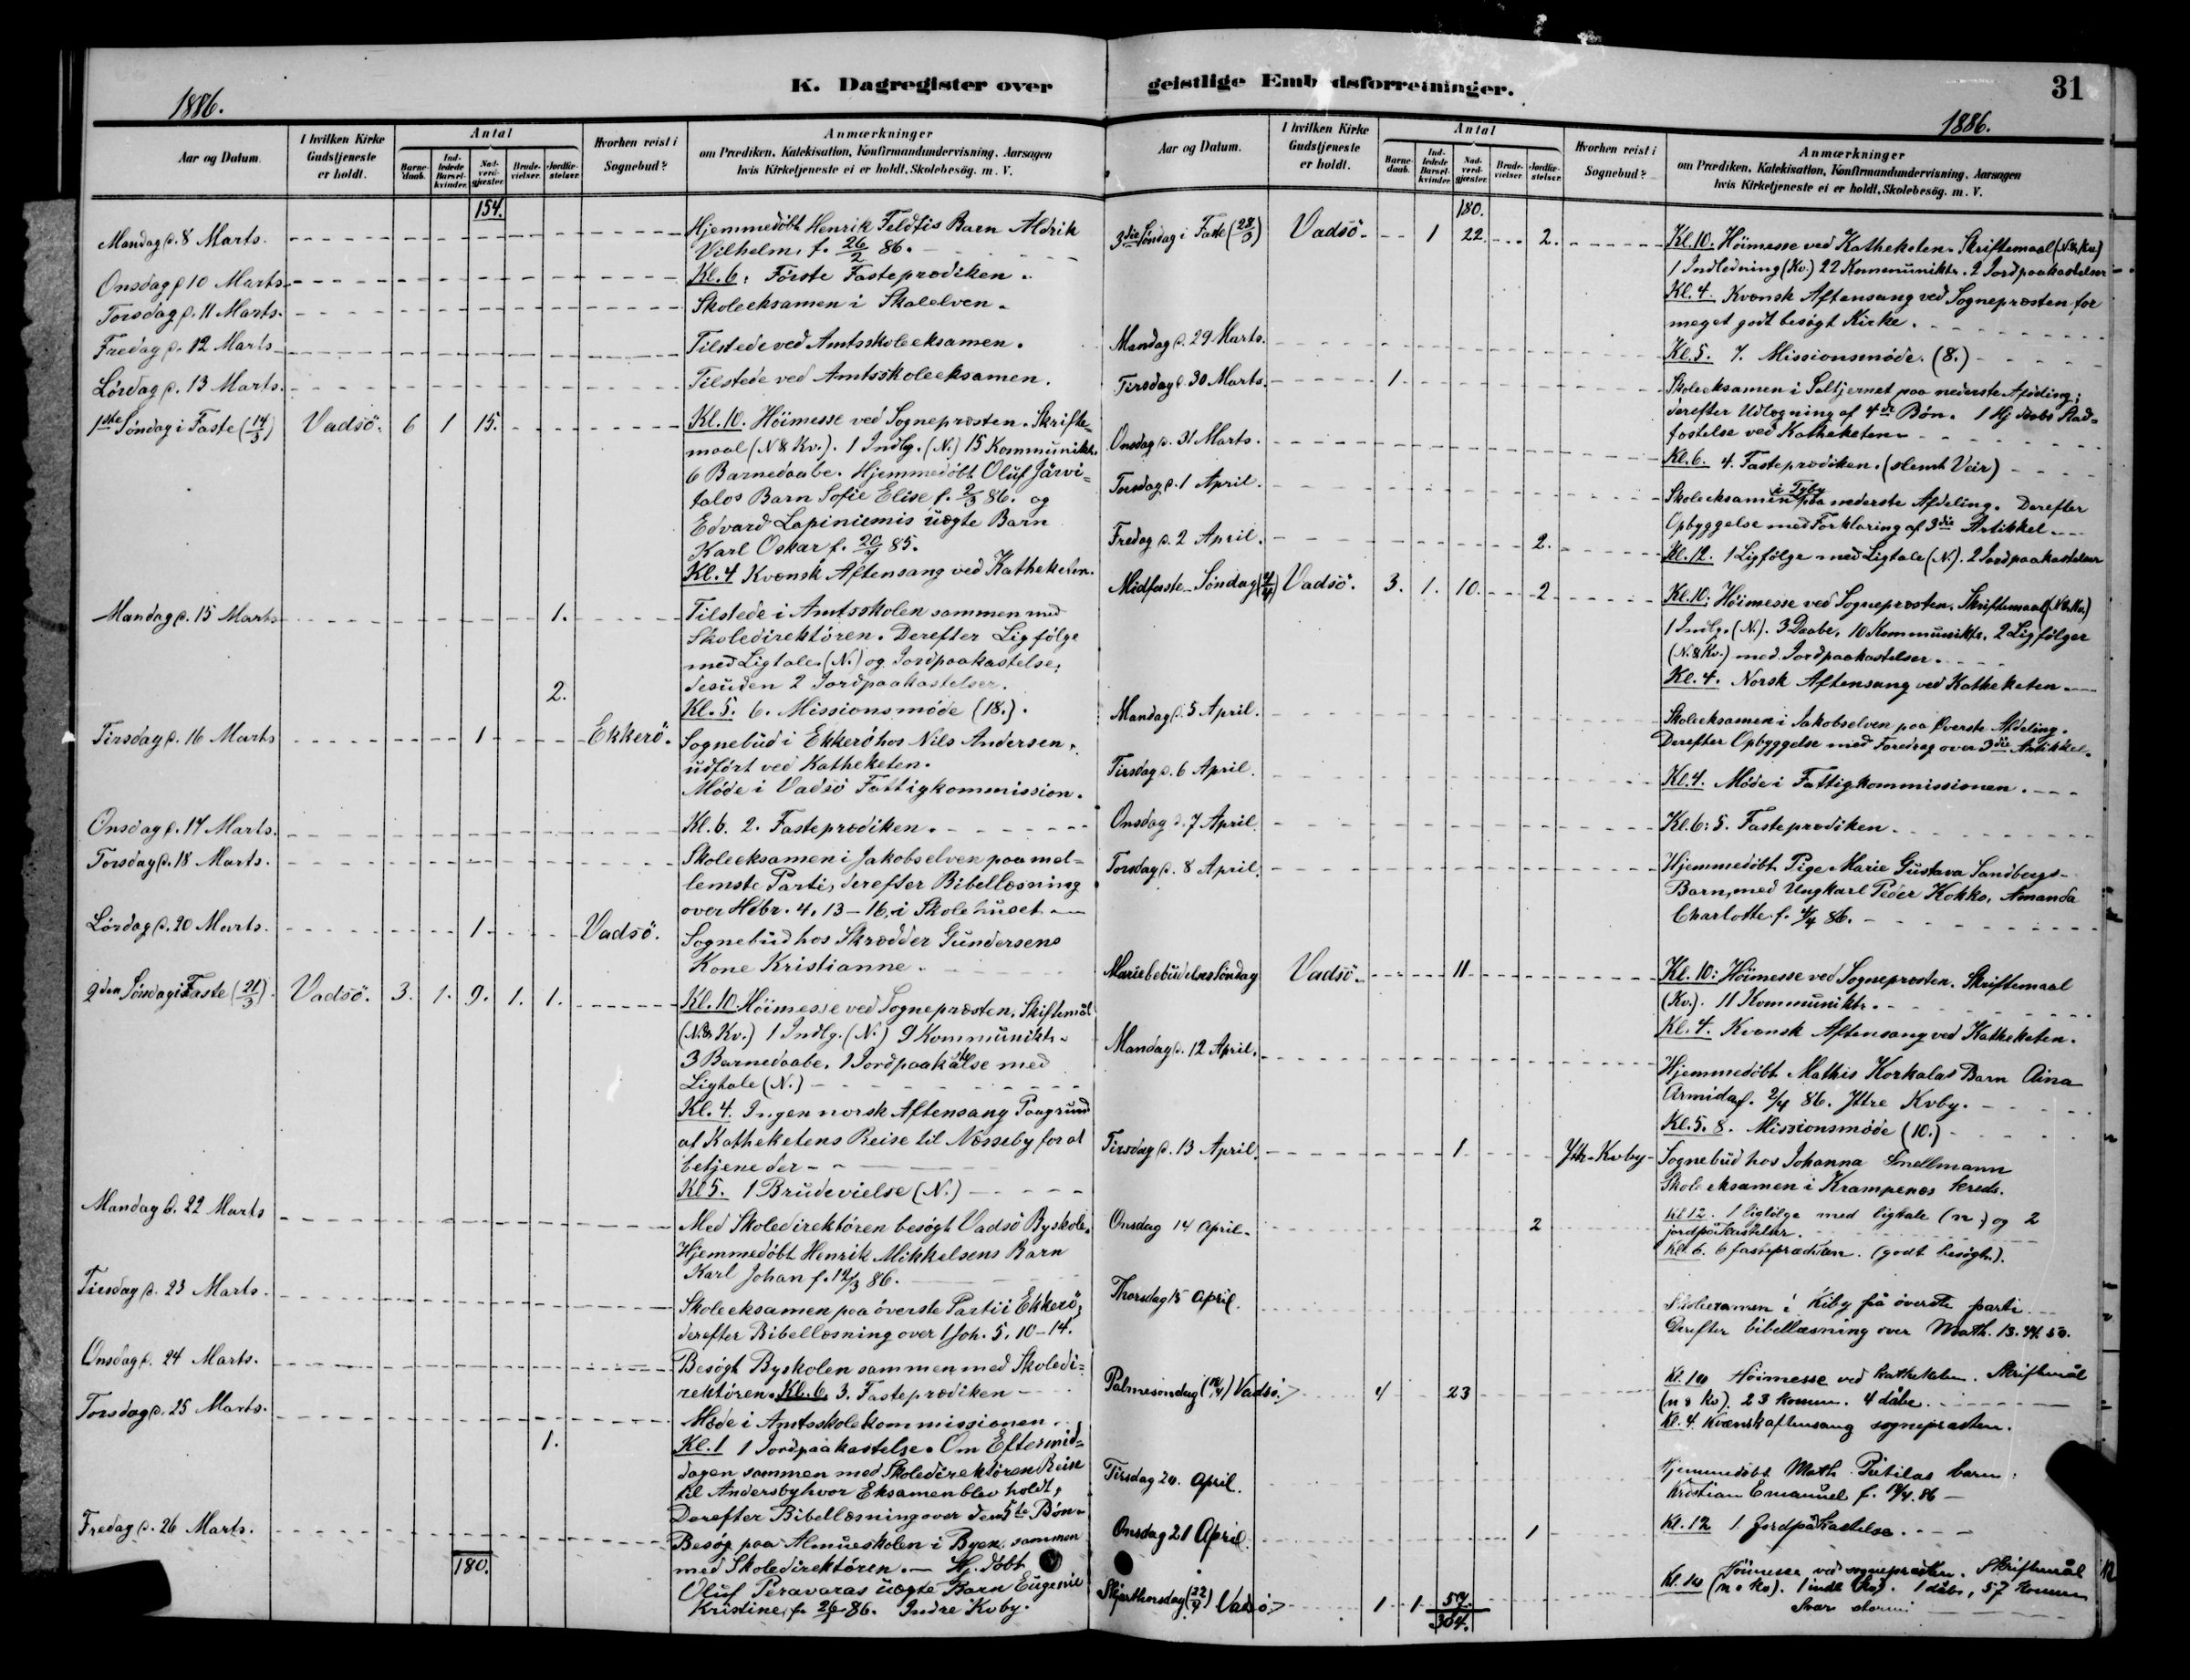 K. Dagregister over geistlige Embedsforretninger.
31
1886.
1886.
Aar og Datum.
I hvilken Kirke Gudstjeneste er holdt.
Antal
Barnedaab.
Indledede Barselkvinder.
Nadverdgjæster.
Brudevielser.
Jordfæstelser.
Hvorhen reist i Sognebud?
Anmærkninger
om Prædiken, Katekisation, Konfirmandundervisning, Aarsagen
hvis Kirketjeneste ei er holdt, Skolebesög. m. V.
154.
Mandag d. 8 Marts. Hjemmedöbt Henrik Feldtis Barn Aldrik
Vilhelm, f. 26/2 86.
Onsdag d. 10 Marts Kl. 6. Første Fasteprædiken.
Torsdag d. 11 Marts. Skoleeksamen i Skalelven.
Fredag d. 12 Marts Tilstede ved Amtsskoleeksamen.
Lørdag d. 13 Marts. Tilstede ved Amtsskoleeksamen.
1ste Søndag i Faste (14/3) Vadsö. 6 1 15. Kl. 10. Höimesse ved Sognepræsten. Skrifte=
maal (N & Kv.). 1 Indlg. (N.) 15 Kommunikt.
6 Barnedaabe. Hjemmedöbt Oluf Järvi=
talos Barn Sofie Elise f. 2/3 86. og
Edvard Lapiniemis uægte Barn
Karl Oskar f. 20/7 85.
Kl. 4 Kvænsk Aftensang ved Katheketen.
Mandag d. 15 Marts 1. Tilstede i Amtsskolen sammen med
Skoledirektören. Derefter Ligfölge
med Ligtale (N.) og Jordpaakastelse,
2. desuden 2 Jordpaakastelser.
Kl. 5. 6. Missionsmøde (18.).
Tirsdag d. 16 Marts 1 Ekkerö. Sognebud i Ekkerö hos Nils Andersen,
udfört ved Katheketen.
Møde i Vadsö Fattigkommission.
Onsdag d. 17 Marts. Kl. 6. 2. Fasteprædiken.
Torsdag d. 18 Marts. Skoleeksamen i Jakobselven paa mel=
lemste Parti, derefter Bibellæsning
over Hebr. 4, 13-16, i Skolehuset
Lördag d. 20 Marts. 1 Vadsö. Sognebud hos Skrædder Gundersens
Kone Kristianne.
2den Søndag i Faste (21/3). Vadsö. 3. 1. 9. 1. 1. Kl. 10 Höimesse ved Sognepræsten, Skiftemål
(N. & Kv.) 1 Indlg. (N.) 9 Kommunikt.
3 Barnedaabe, 1 Jordpaakastelse med
Ligtale (N.)
Kl. 4. Ingen norsk Aftensang Paagrund
af Katheketens Reise til Næsseby for at
betjene der
Kl 5. 1 Brudevielse (N.)
Mandag d. 22 Marts Med Skoledirektören besögt Vadsö Byskole.
Hjemmedöbt Henrik Mikkelsens Barn
Karl Johan f. 12/3 86.
Tirsdag d. 23 Marts. Skoleeksamen paa överste Parti i Ekkerö,
derefter Bibellæsning over 1 Joh. 5, 10-14.
Onsdag d. 24 Marts. Besögt Byskolen sammen med Skoledi=
rektören. Kl. 6. 3. Fasteprædiken
Torsdag d. 25 Marts. Møde i Amtsskolekommissionen.
1. Kl. 1 1 Jordpaakastelse. Om Eftermid=
dagen sammen med Skoledirektören Reise
til Andersby hvor Eksamen blev holdt,
Derefter Bibellæsning over den 5te Bøn.
Fredag d. 26 Marts. Besög paa Almueskolen i Byen, sammen
med Skoledirektören. Hj. döbt
Oluf Peravaras uægte Barn Eugenie
Kristine, f. 86. Indre Kvby.
180.
Aar og Datum.
I hvilken Kirke Gudstjeneste er holdt.
Antal
Barnedaab.
Indledede Barselkvinder.
Nadverdgjæster.
Brudevielser.
Jordfæstelser.
Hvorhen reist i Sognebud?
Anmærkninger
om Prædiken, Katekisation, Konfirmandundervisning, Aarsagen
hvis Kirketjeneste ei er holdt, Skolebesög. m. V.
180.
3die Søndag i Faste (28/3) Vadsö. 1 22. 2. Kl. 10. Höimesse ved Katheketen. Skriftemaal (N & Kv.)
1 Indledning (Kv.) 22 Kommunikt. 2 Jordpaakastelser
Kl. 4. Kvænsk Aftensang ved Sognepræsten for
meget godt besøgt Kirke.
Mandag d. 29 Marts. Kl. 5. 7. Missionsmøde. (8.)
Tirsdag d. 30 Marts. 1. Skoleeksamen i Saltjernet paa nederste Afdeling;
derefter Udlægning af 4de Bøn. 1 Hj daabs Stad=
fæstelse ved Katheketen
Onsdag d. 31 Marts. Kl. 6. 4. Fasteprædiken. (slemt Veir)
Torsdag d. 1 April. Skoleeksamen i Kiby paa nederste Afdeling. Derefter
Opbyggelse med Forklaring af 3die Artikkel
Fredag d. 2 April. 2. Kl. 12. 1 Ligfölge med Ligtale (N.). 2 Jordpaakastelser
Midfaste-Søndag (4/4) Vadsö. 3. 1. 10. 2 Kl. 10. Höimesse ved Sognepræsten. Skriftemaal (N & Kv.)
1 Indlg. (N.). 3 Daabe, 10 Kommunikt. 2 Ligfölger
(N. & Kv.) med Jordpaakastelser.
Kl. 4. Norsk Aftensang ved Katheketen.
Mandag d. 5 April. Skoleeksamen i Jakobselven paa Överste Afdeling.
Derefter Opbyggelse med Foredrag over 3die Artikkel.
Tirsdag d. 6 April. Kl. 4. Møde i Fattigkommissionen.
Onsdag d. 7 April. Kl. 6: 5. Fasteprædiken.
Torsdag d. 8 April. Hjemmedöbt Pige Marie Gustava Sandbergs
Barn, med Ungkarl Peder Kokko, Amanda
Charlotte f. 4/4 86.
Mariebebudelsesøndag Vadsö. 11 Kl. 10: Höimesse ved Sognepræsten. Skriftemaal
(Kv.). 11 Kommunikt.
Kl. 4. Kvænsk Aftensang ved Katheketen.
Mandag d. 12 April. Hjemmedöbt Mathis Korkalas Barn Aina
Armida f. 2/4 86. Yttre Kvby.
Kl. 5. 8. Missionsmøde (10.)
Tirsdag d. 13 April. 1 Ytr. Kvby Sognebud hos Johanna Snellmann
Skoleeksamen i Krampenæs kreds.
Onsdag 14 April. 2 Kl 12. 1 ligfölge med ligtale (n.) og 2
jordpåkastelser.
Kl. 6. 6 fasteprædiken. (godt besögt).
Thorsdag 15 April. Skoleexamen i Kiby på överste parti
Derefter bibellæsning over Math. 13. 44. 50.
Palmesöndag (18/4) Vadsö. 4 23 Kl. 10 Höimesse ved katheketen. Skriftemål
(n & kv). 23 komm. 4 dåbe.
Kl. 4. Kvænsk aftensang sognepræsten.
Tirsdag 20. April. Hjemmedöbt Math. Pietilas barn:
Kristian Emanuel f. 86
Onsdag 21 April. 1 Kl. 12 1 Jordpåkastelse.
Skjærthorsdag (22/4) Vadsö 1 1 57. Kl. 10 Höimesse ved sognepræsten. Skriftemål
(n & kv). 1 indl (kv). 1 dåb, 57 komm
Svær storm
304.